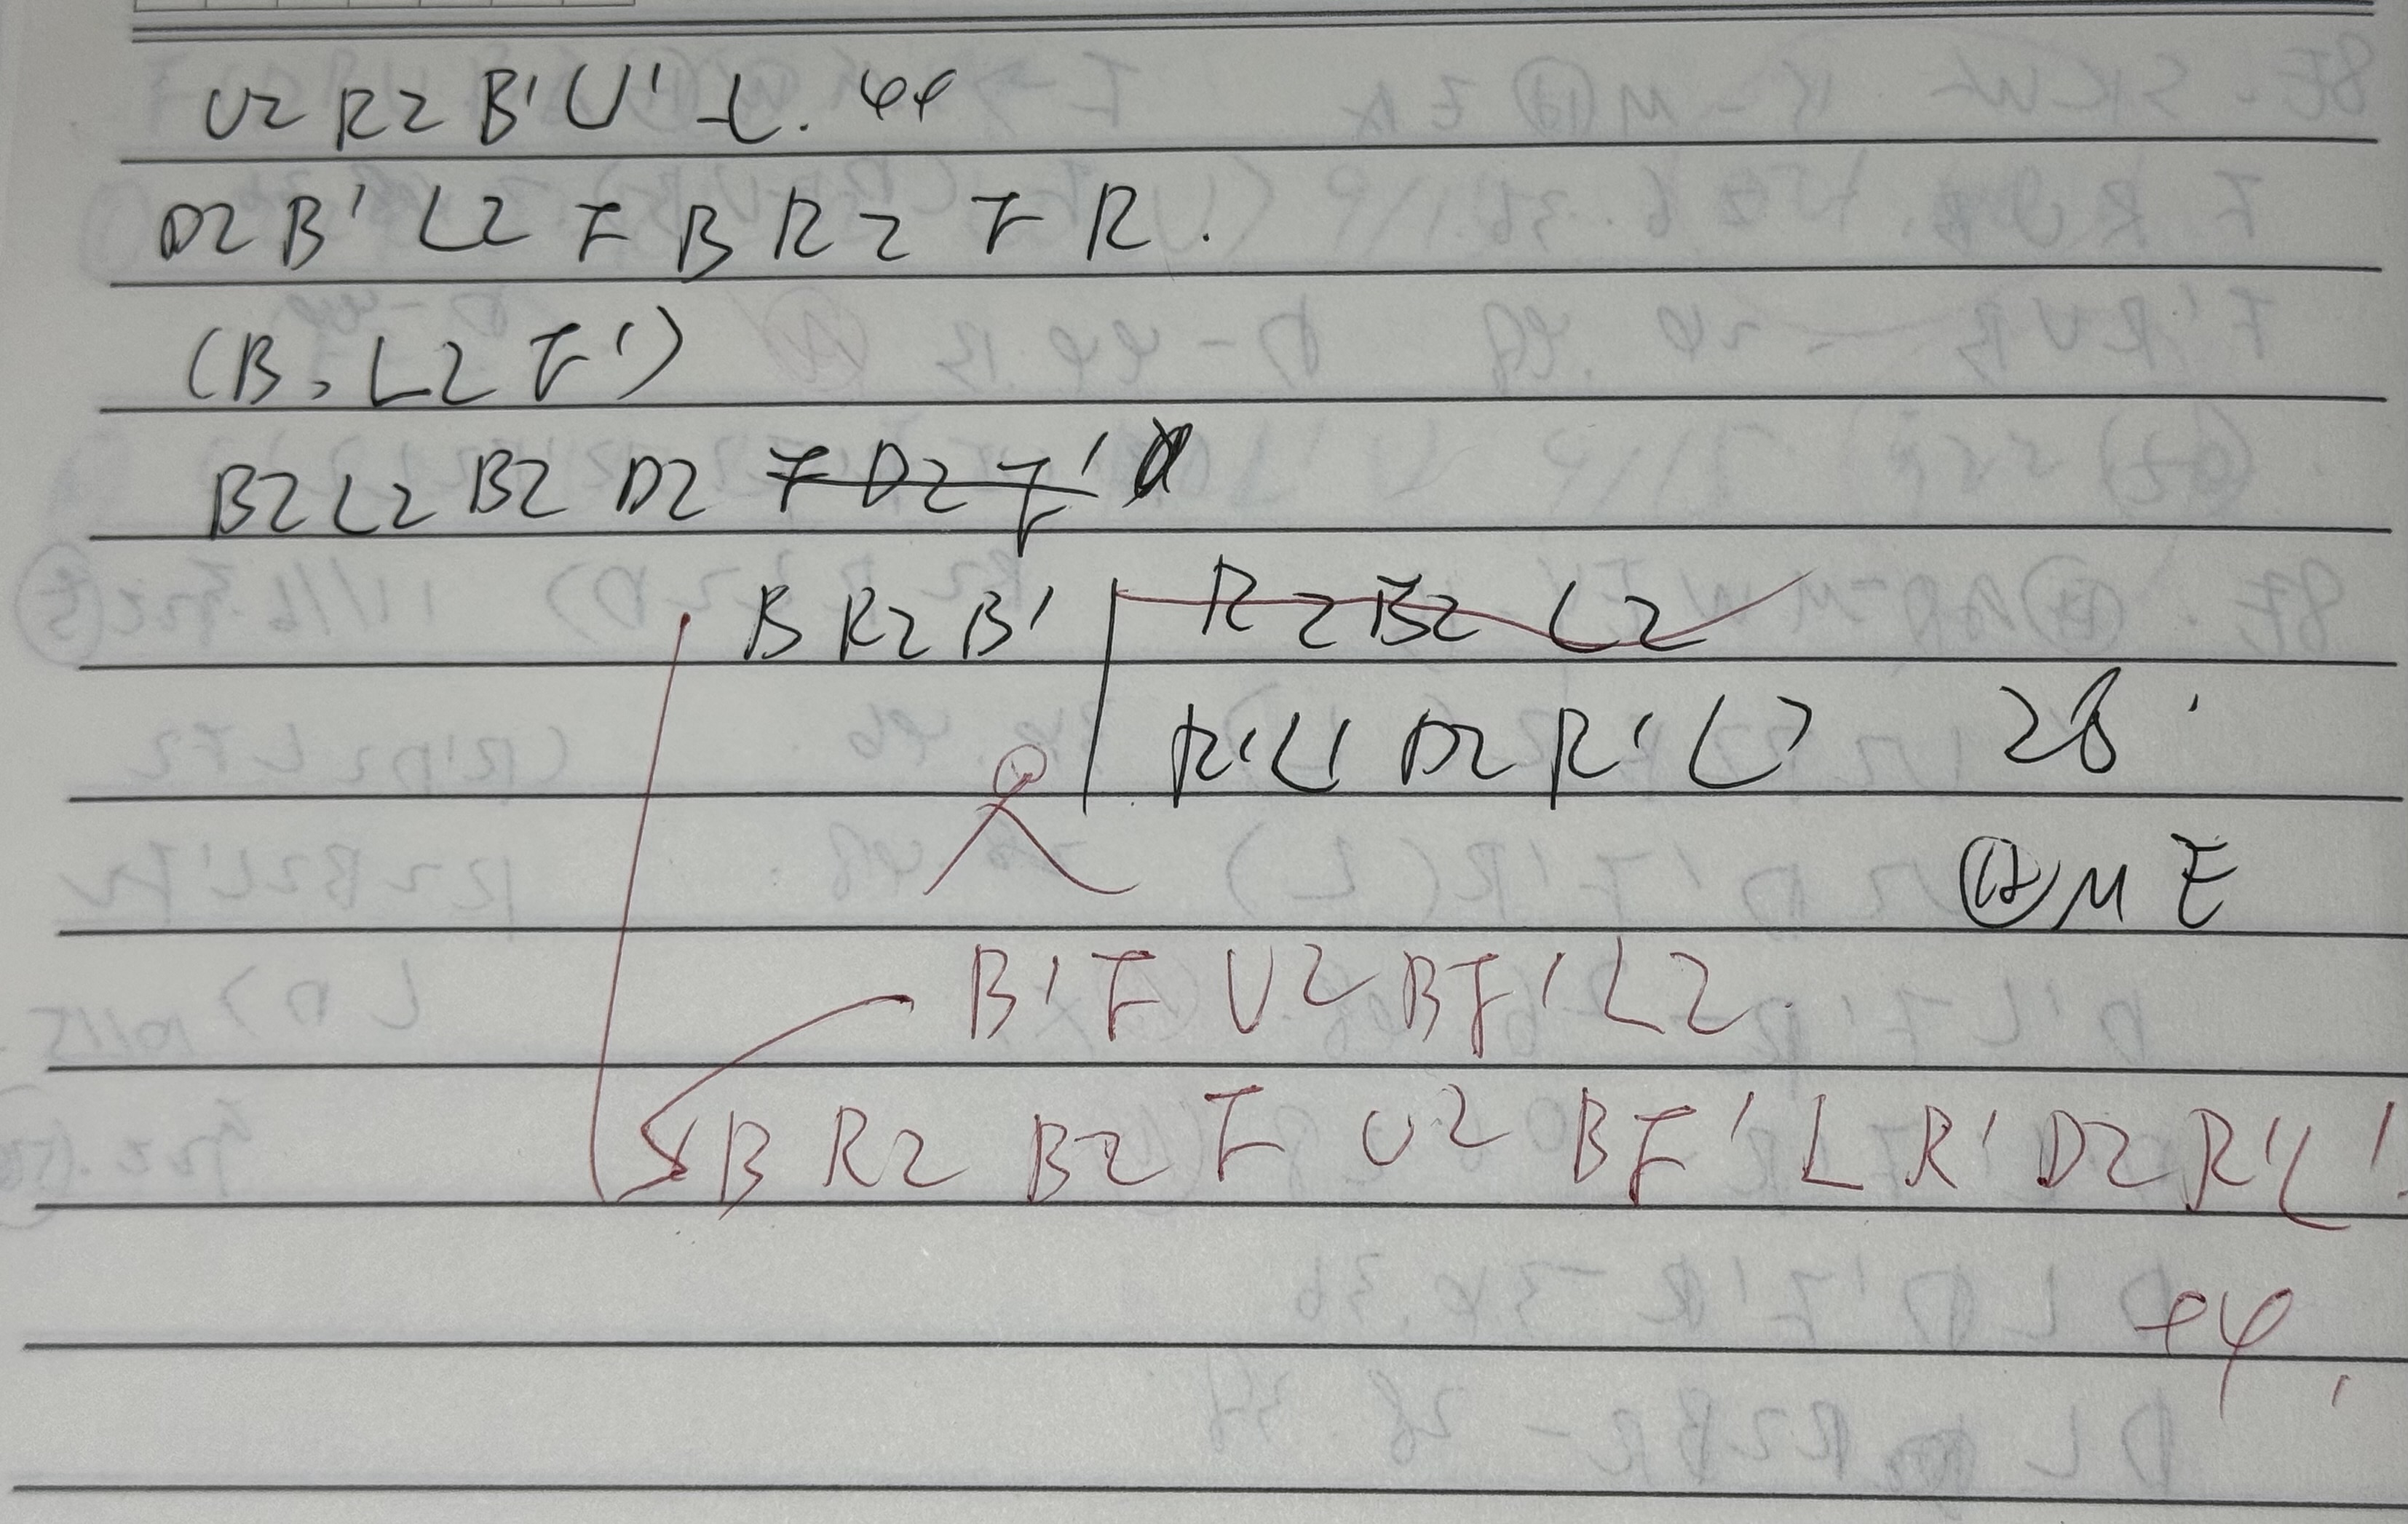 U2 R2 B' U' - L. 44
D2 B' L2 F B R2 F R.
(B, L2 F')
B2 L2 B2 D2 F D2 F'
B R2 B' R2 B2 L2
R'L' D2 R' L 28
M E
B' F U2 B F' L2.
B R2 B2 F U2 B F' L R' D2 R' L'